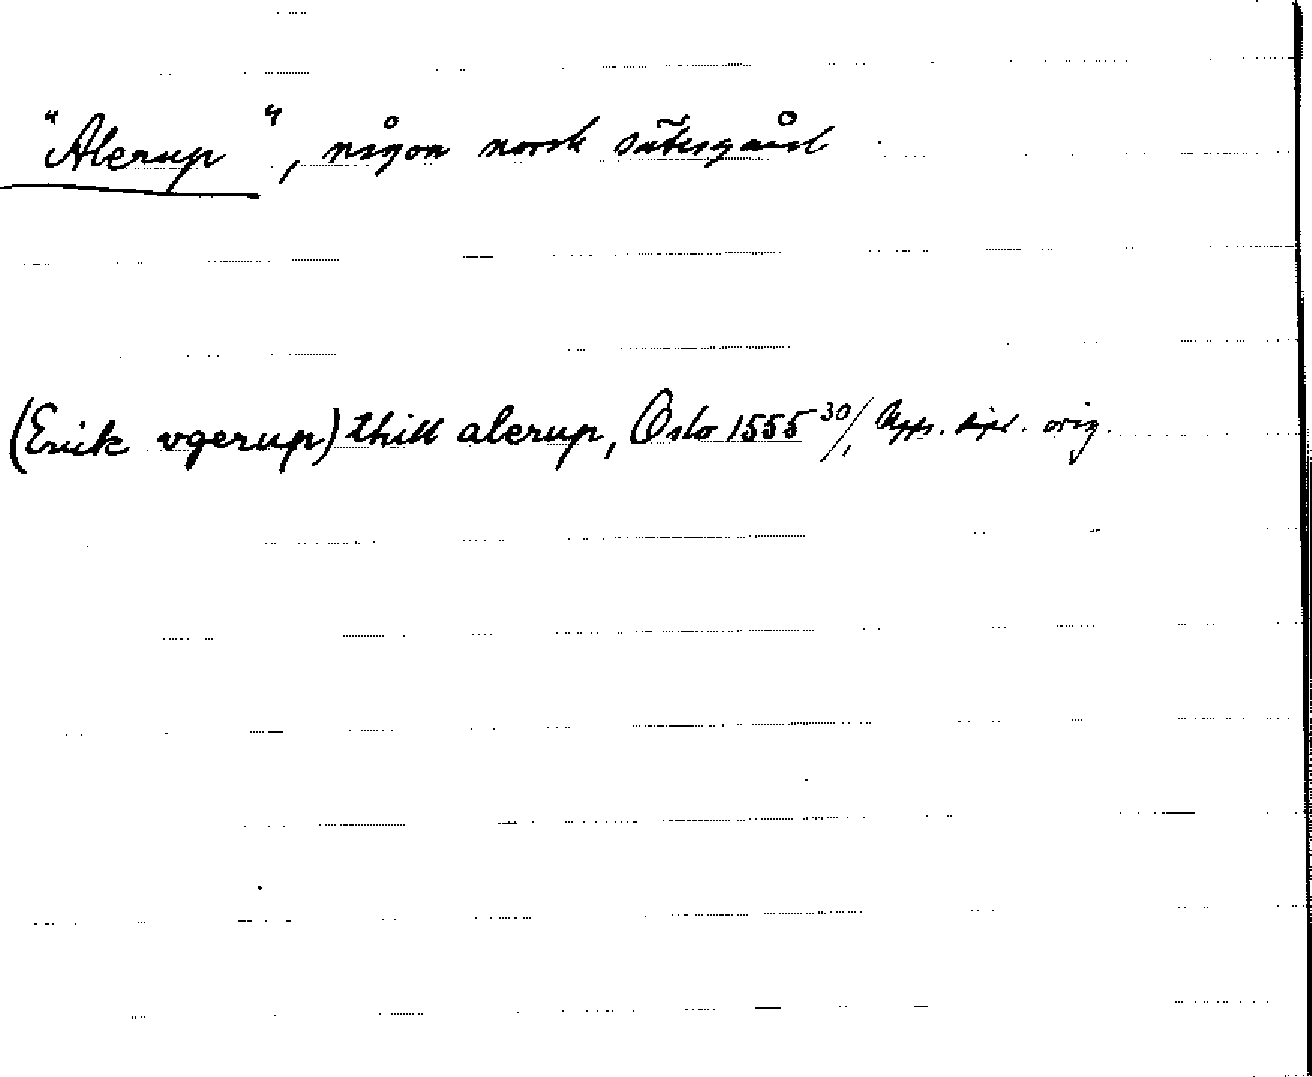 "Alerup", någon norsk sätesgård
(Erik vgerup) thill alerup, Oslo 1555 30/1 Upps. dipl. orig.